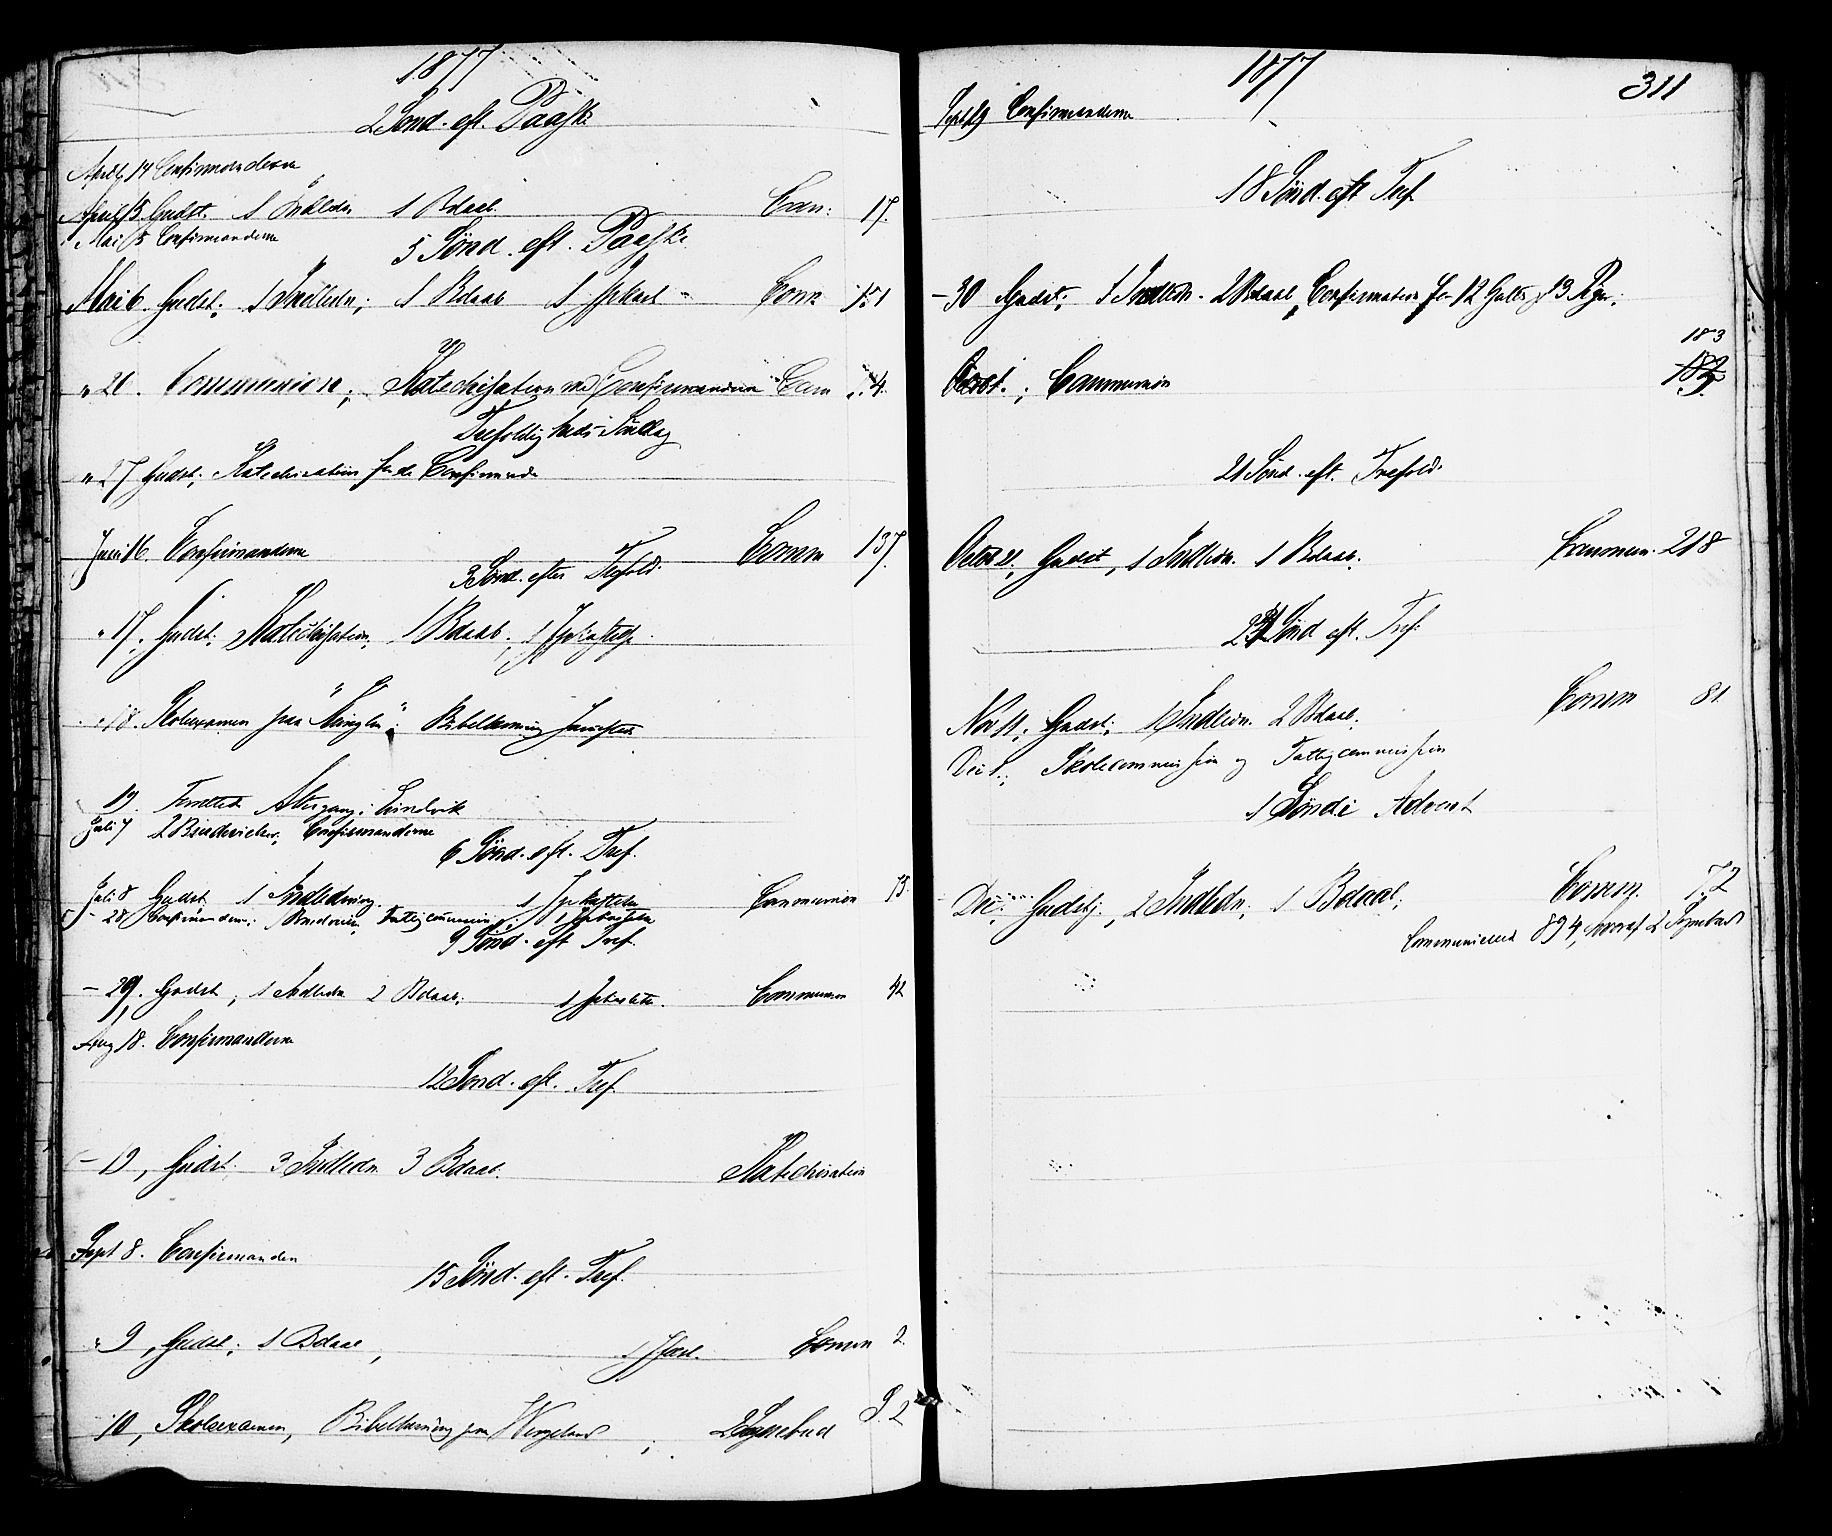 1877
2 Sønd. eft. Paaske
April 14 Confirmanderne
April 15 Gudst. 1 Indledn 1 Bdaab. Com: 17.
Mai 5 Confirmanderne
5 Sønd. eft. Paaske
Mai 6. Gudst; 1 Indledn; 1 Bdaab 1 Jpkast Comm 151
" 20. Communion; Katechisation m Confirmanderne Com
Trefoldigheds Søndag
" 27 Gudst; Katechisation for de Confirmerede
Juni 16. Confirmanderne Comm 137.
3 Sønd. efter Trefold.
" 17. Gudst; Katechisation, 1 Bdaab., 1 Jpkastelse
" 18. Skoleexamen paa Bibellæsning
19.
Juli 7 2 Confirmanderne
6 Sønd. eft. Tref.
Juli 8 Gudst 1 Indledning. 1 Jpkastelse Communion 13.
- 28, Confirmanderne; Fattigcommission; 1 Jpkastelse
9 Sønd. eft Tref.
- 29. Gudst, 1 Indledn 2 Bdaab; 1 Jpkastelse. Communion 42
Aug 18. Confirmanderne
12 Sønd. eft. Tref.
- 19, Gudst. 3 Indledn 3 Bdaab. Katechisation
Sept 8. Confirmanden
15 Sønd. eft. Tref.
" 9, Gudst; 1 Bdaab, 1 Jpkast. Comm 2.
10, Skoleexamen, Bibellæsning paa ; 2 Sognebud S. 2
1877
311
Sept 29 Confirmanderne
18 Sønd. eft Tref
- 30 Gudst; 1 Indledn. 2 Bdaab, Confirmation for 12 Gutter og 13 Piger;
183
Octob 1.; Communion
21 Sønd. eft. Trefold.
Octob 21, Gudst, 1 Indledn. 1 Bdaab. Commun. 218
24 Sønd eft. Tref.
Nov 11. Gudst; 1 Indledn. 2 Bdaab. Comm 81
Dec 1.; Skolecommission og Fattigcommission
1 Sønd. i Advent
Dec. Gudstj., 2 Indledn; 1 Bdaab; Comm. 72
Communicerede 894, hvoraf 2 Sognebud